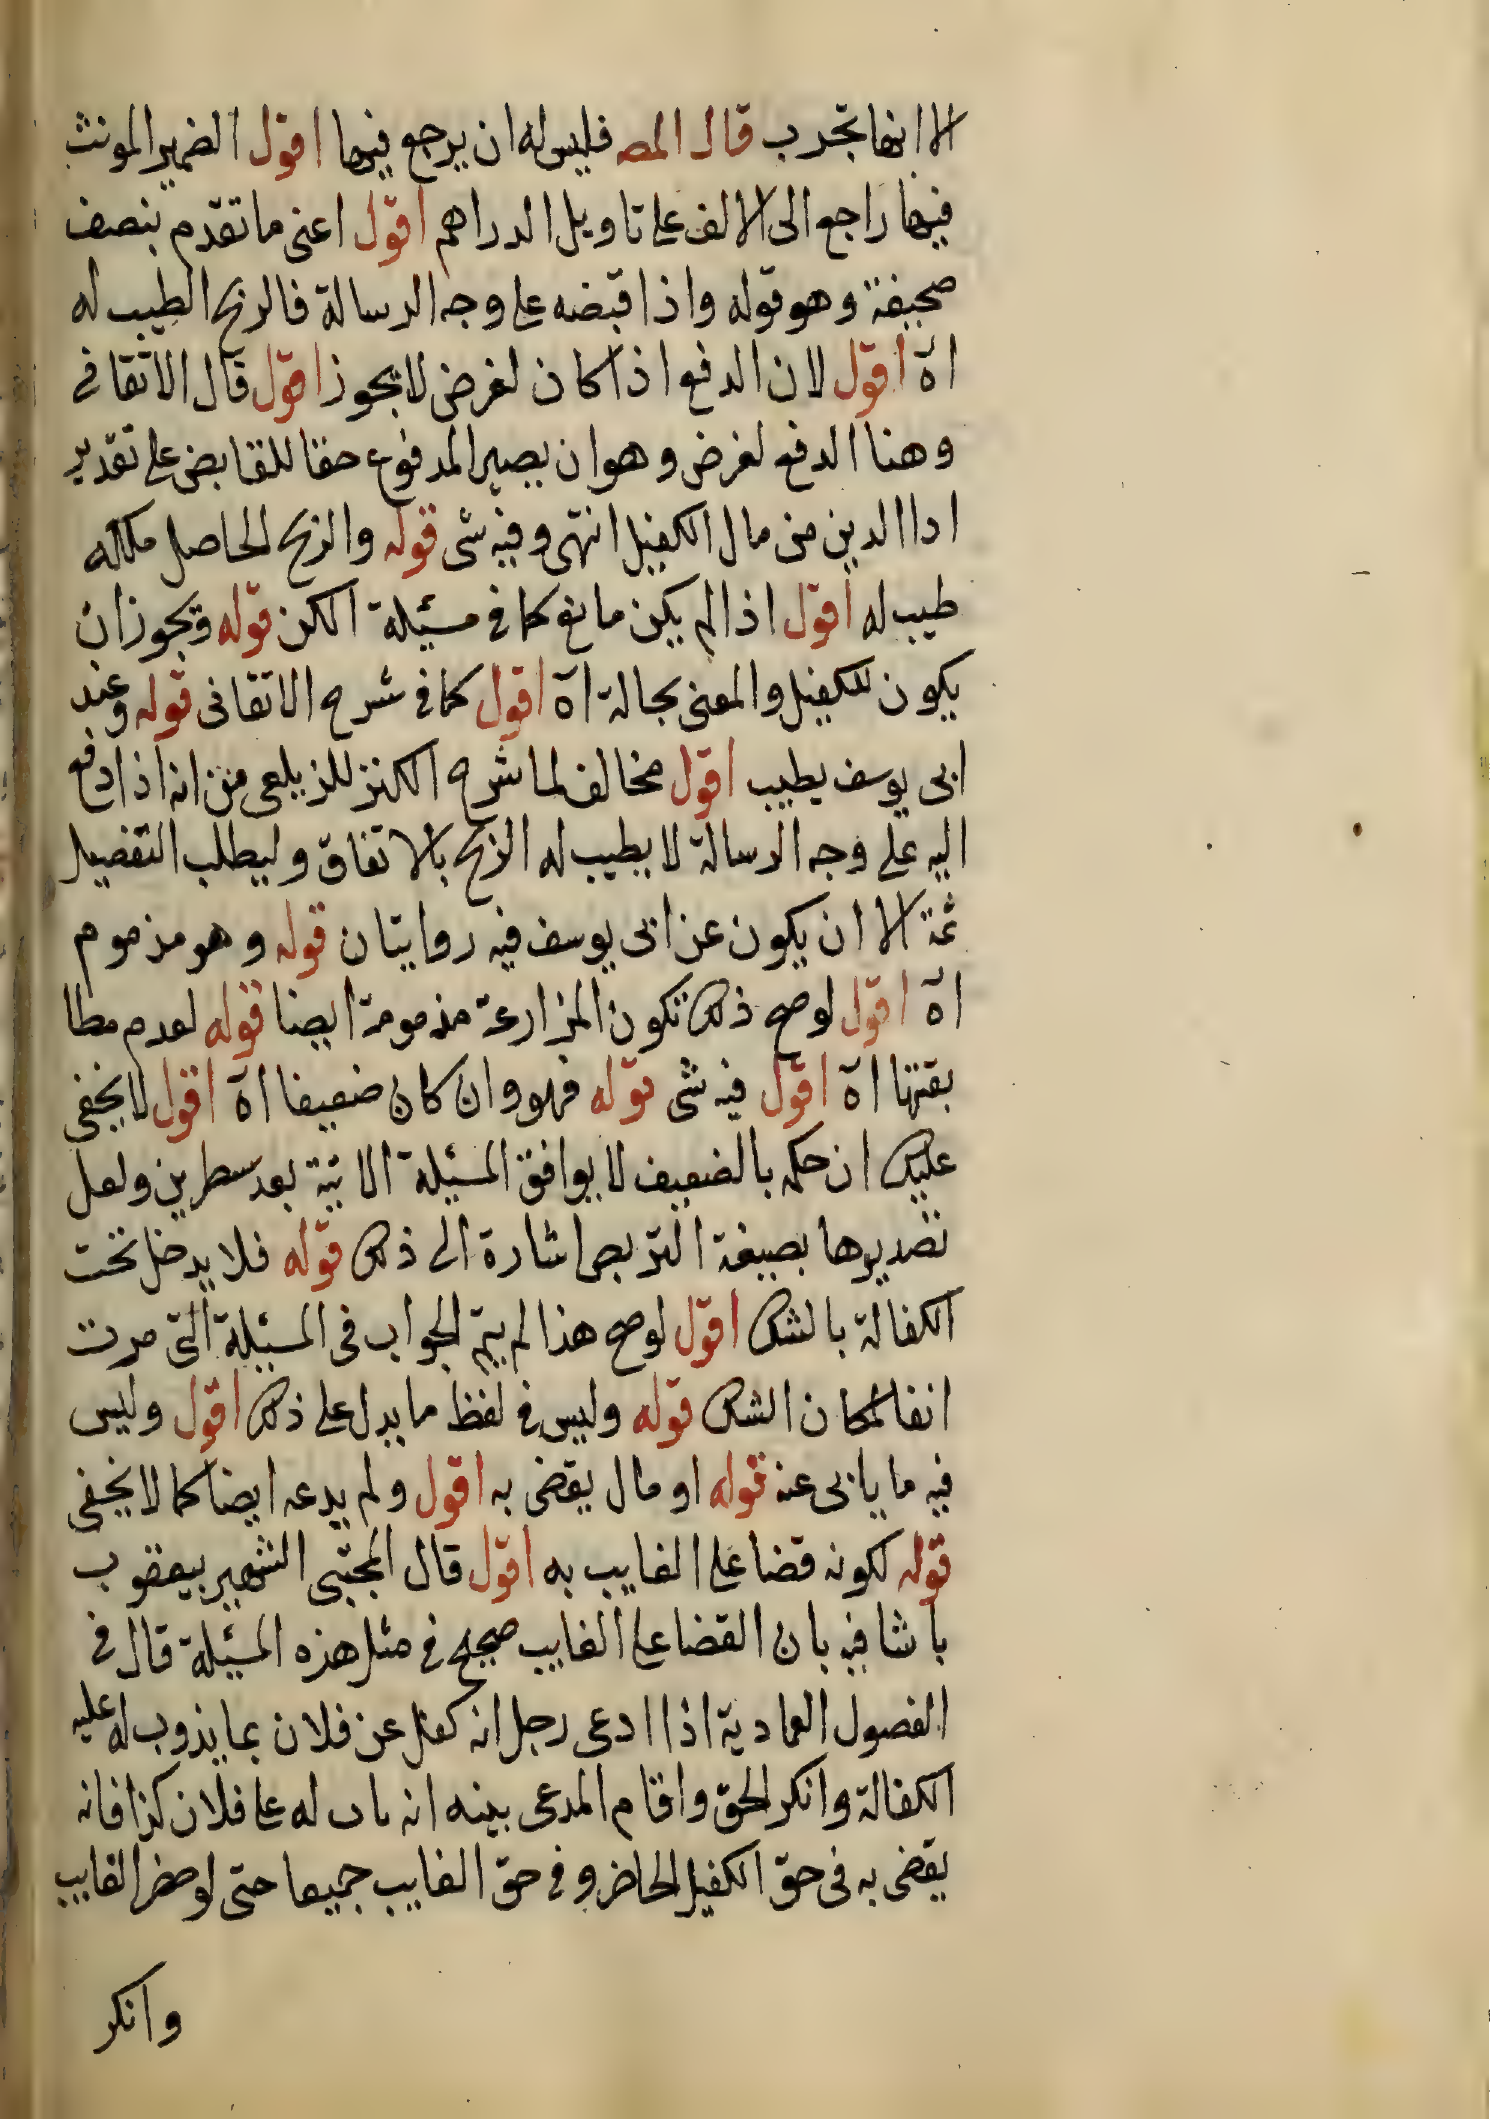 الا انها تجرب قال المصـ فليس له ان يرجع فيها اقول الضمير المونث
فيها راجع الى الالف على تاويل الدراهم اقول اعنى ما تقدم بنصف
صحيفة وهو قوله واذا قبضه على وجه الرسالة فالربح الطيب له
اه اقول لان الدفع اذا كان لغرض لا يجوز اقول قال الاتقانى
وهنا الدفع لغرض وهو ان يصير المدفوع حقا للقابض على تقدير
ادا الدين من مال الكفيل انتهى وفيه شى قوله والربح الحاصل ملكه
طيب له اقول اذا لم يكن مانع كما فى مسئلة الكن قوله ويجوز ان
يكون للكفيل والمعنى بحالة اه اقول كما فى شرح الاتقانى قوله وعند
ابى يوسف يطيب اقول مخالف لما شرح الكنز للزيلعى من انه اذا دفع
اليه على وجه الرسالة لا يطيب له الربح بالاتفاق وليطلب التفصيل
ثمة الا ان يكون عن ابى يوسف فيه روايتان قوله وهو مذموم
اه اقول لو صح ذلك تكون المزارعة مذمومة ايضا قوله لعدم مطا
بقتها اه اقول فيه شى قوله فهو وان كان ضعيفا اه اقول لا يخفى
عليك ان حكمه بالضعيف لا يوافق المسئلة الاتية بعد سطرين ولعل
تصديرها بصيغة التربص اشارة الى ذلك قوله فلا يدخل تحت
الكفالة بالشك اقول لو صح هذا لم يتم الجواب فى المسئلة التى مرت
انفا لمكان الشك قوله وليس فى لفظ ما يدل على ذلك اقول وليس
فيه ما يابى عنه قوله او مال يقضى به اقول ولم يدعه ايضا كما لا يخفى
قوله لكونه قضا على الغايب به اقول قال المجتبى الشهير بيعقوب
باشا فيه بان القضا على الغايب صحيح فى مثل هذه المسئلة قال فى
الفصول العمادية اذا ادعى رجل انه كفل عن فلان بما يذوب له عليه
الكفالة وانكر الحق واقام المدعى بينه انه ذاب له على فلان كذا فانه
يقضى به فى حق الكفيل الحاضر وفى حق الغايب جميعا حتى لو حضر الغايب
وانكر